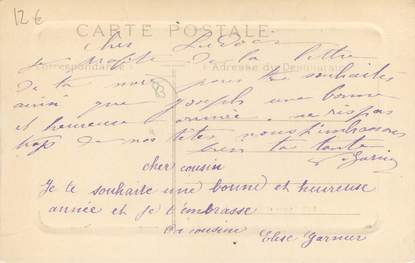 12 €
CARTE POSTALE
Correspondance
Adresse du Destinataire
cher Ludovic
Je profite de la lettre
de ta mère pour te souhaiter
ainsi que Joseph une bonne
et heureuse année
de nos
bien ta tante
Garnier
cher cousin
Je te souhaite une bonne et heureuse
année et je t'embrasse
ta cousine
Elise Garnier